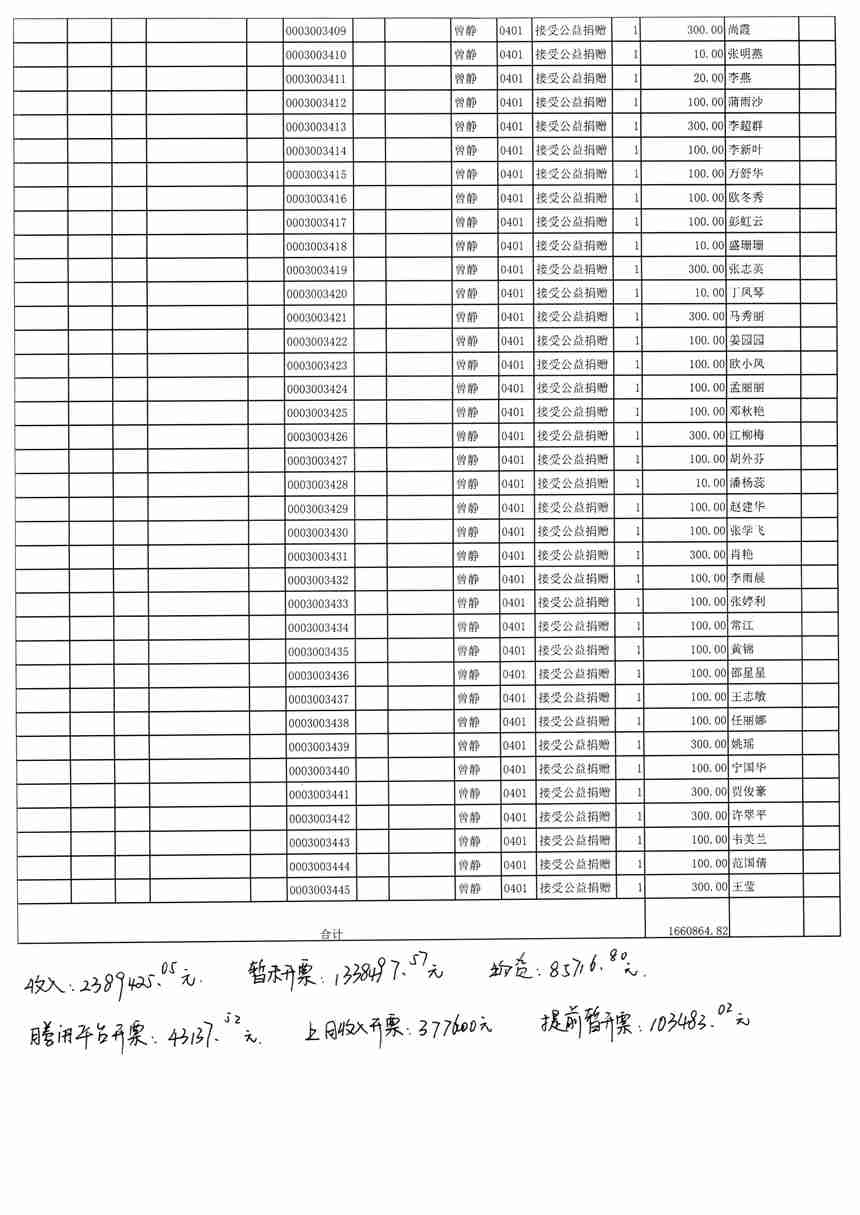 0003003409 曾静 0401 接受公益捐赠 1 300.00 尚霞
0003003410 曾静 0401 接受公益捐赠 1 10.00 张明燕
0003003411 曾静 0401 接受公益捐赠 1 20.00 李燕
0003003412 曾静 0401 接受公益捐赠 1 100.00 蒲雨沙
0003003413 曾静 0401 接受公益捐赠 1 300.00 李超群
0003003414 曾静 0401 接受公益捐赠 1 100.00 李新叶
0003003415 曾静 0401 接受公益捐赠 1 100.00 万舒华
0003003416 曾静 0401 接受公益捐赠 1 100.00 欧冬秀
0003003417 曾静 0401 接受公益捐赠 1 100.00 彭虹云
0003003418 曾静 0401 接受公益捐赠 1 10.00 盛珊珊
0003003419 曾静 0401 接受公益捐赠 1 300.00 张志英
0003003420 曾静 0401 接受公益捐赠 1 10.00 丁凤琴
0003003421 曾静 0401 接受公益捐赠 1 300.00 马秀丽
0003003422 曾静 0401 接受公益捐赠 1 100.00 姜园园
0003003423 曾静 0401 接受公益捐赠 1 100.00 欧小凤
0003003424 曾静 0401 接受公益捐赠 1 100.00 孟丽丽
0003003425 曾静 0401 接受公益捐赠 1 100.00 邓秋艳
0003003426 曾静 0401 接受公益捐赠 1 300.00 江柳梅
0003003427 曾静 0401 接受公益捐赠 1 100.00 胡外芬
0003003428 曾静 0401 接受公益捐赠 1 10.00 潘杨蕊
0003003429 曾静 0401 接受公益捐赠 1 100.00 赵建华
0003003430 曾静 0401 接受公益捐赠 1 100.00 张学飞
0003003431 曾静 0401 接受公益捐赠 1 300.00 肖艳
0003003432 曾静 0401 接受公益捐赠 1 100.00 李雨晨
0003003433 曾静 0401 接受公益捐赠 1 100.00 张婷利
0003003434 曾静 0401 接受公益捐赠 1 100.00 常江
0003003435 曾静 0401 接受公益捐赠 1 100.00 黄锦
0003003436 曾静 0401 接受公益捐赠 1 100.00 邵星星
0003003437 曾静 0401 接受公益捐赠 1 100.00 王志敏
0003003438 曾静 0401 接受公益捐赠 1 100.00 任丽娜
0003003439 曾静 0401 接受公益捐赠 1 300.00 姚瑶
0003003440 曾静 0401 接受公益捐赠 1 100.00 宁国华
0003003441 曾静 0401 接受公益捐赠 1 300.00 贾俊豪
0003003442 曾静 0401 接受公益捐赠 1 300.00 许翠平
0003003443 曾静 0401 接受公益捐赠 1 100.00 韦美兰
0003003444 曾静 0401 接受公益捐赠 1 100.00 范国倩
0003003445 曾静 0401 接受公益捐赠 1 300.00 王莹
合计 1660864.82
收入:2389425.05元. 暂未开票:1338497.57元 物资:85716.80元.
腾讯平台开票:43137.52元. 上月收入开票:377600元 提前暂开票:103483.02元